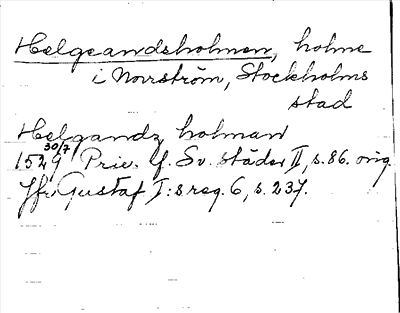 Helgeandsholmen, holme
i Norrström, Stockholms
stad
Helgandz holman
1529 30/7 Priv. f. Sv. städer II, s. 86. orig.
Jfr Gustaf I:s reg. 6, s. 237.